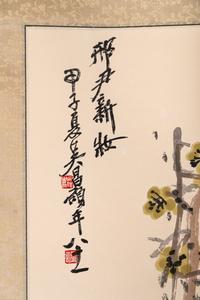 邢尹新妝
甲子夏吳昌碩年八十一